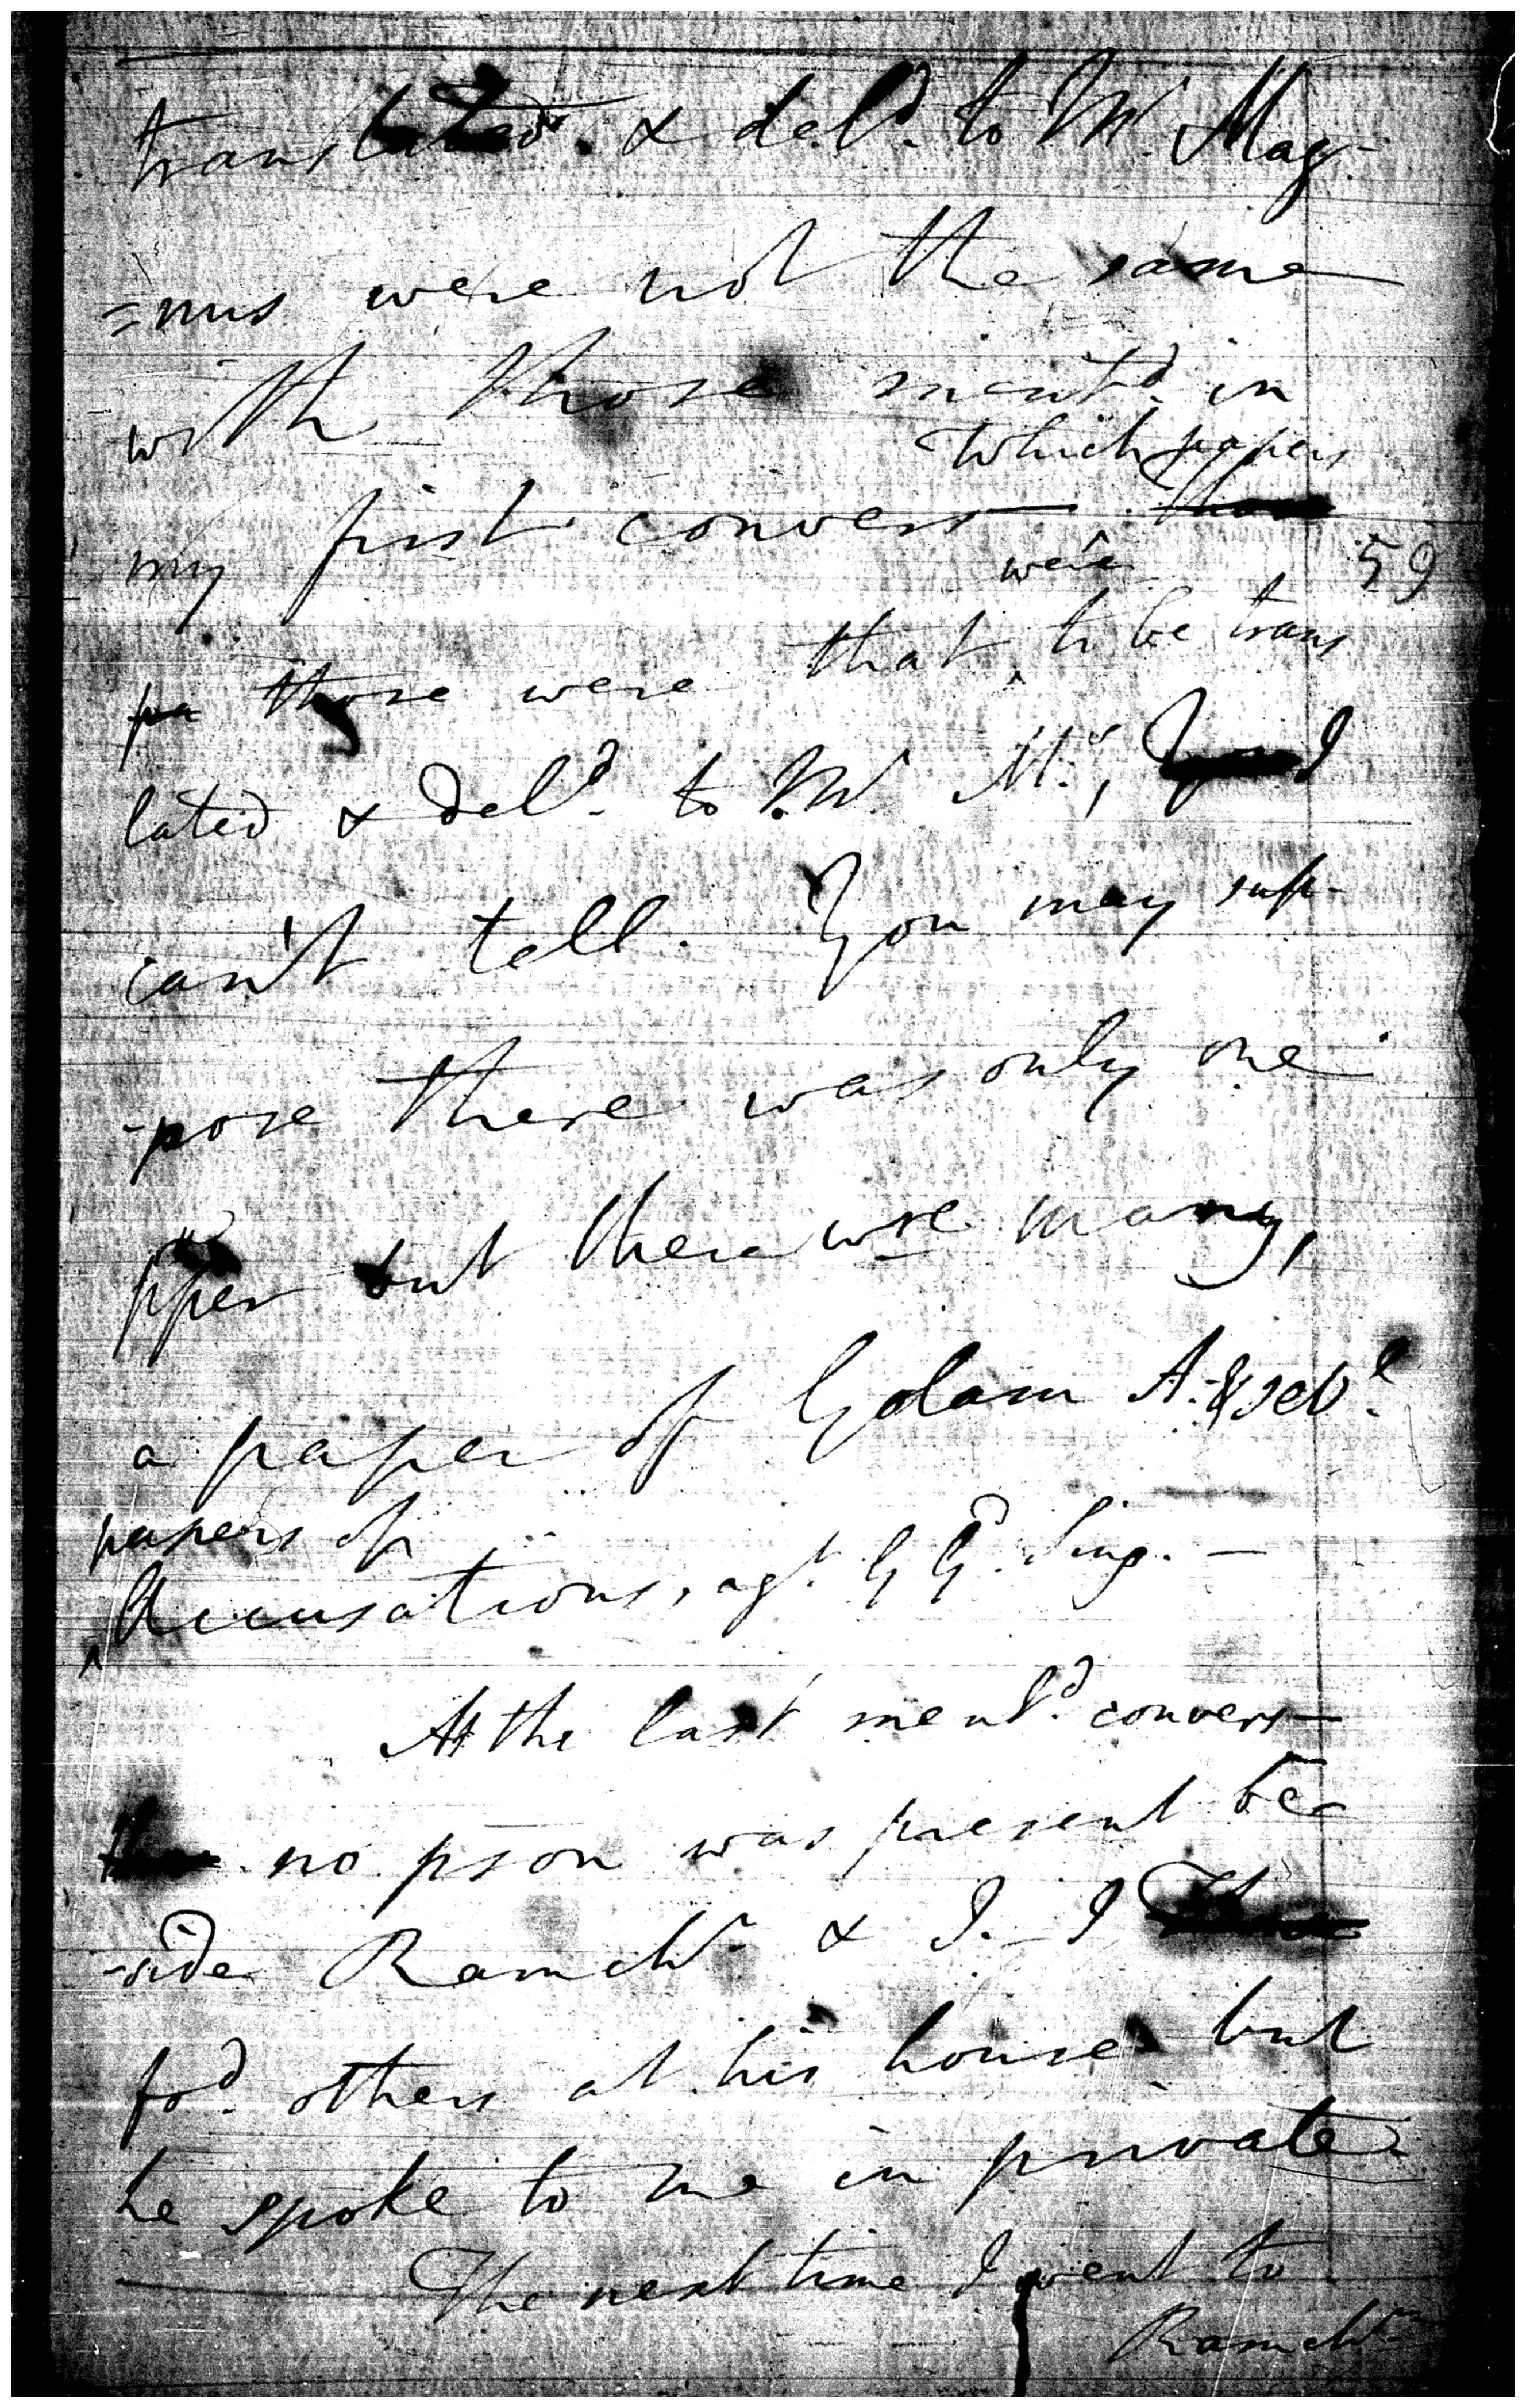 translated. & del^d. to M^r. Mag-
=nus were not the same
with those ment^d. in
which papers
my first convers—
were 59
those were that to be trans
lated & del^d. to M^r M^s, I
can't tell. You may sup-
-pose there was only one
pper but there wre many,
a paper of Golam A. & sev^l.
papers of
Accusations, ag^t. G G^d. Sing. —
At the last ment^d. convers—
no pson was present be-
-side Ramch^r. & I. I
fo^d. others at his house but
he spoke to me in private.
The next time I went to
Ramch^r.